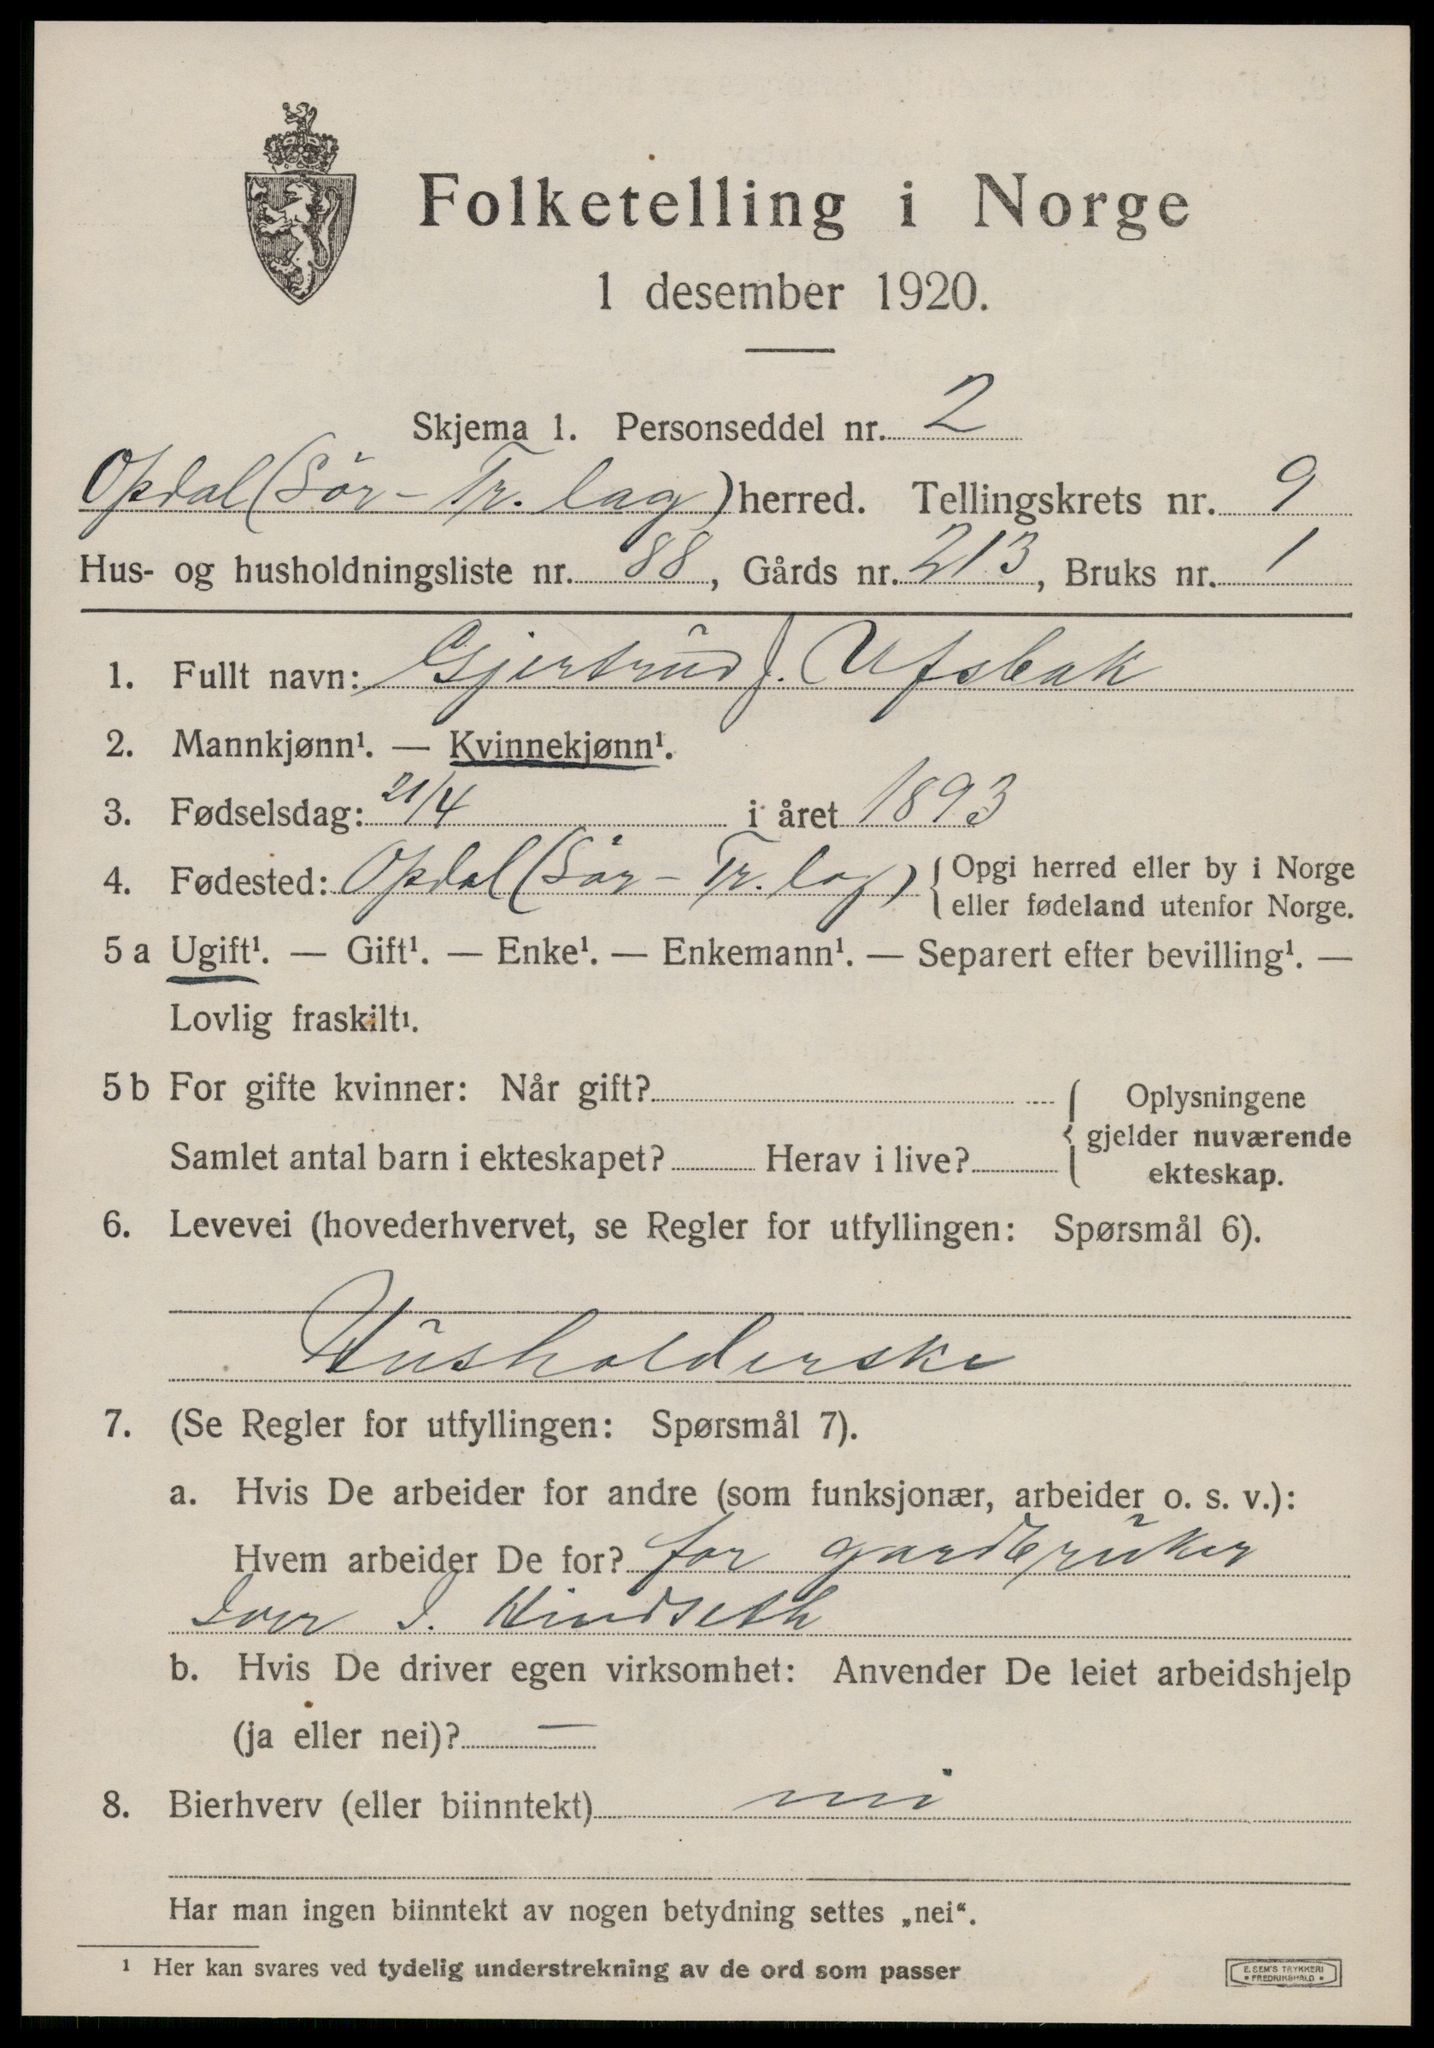 Folketelling i Norge
1 desember 1920.
Skjema 1. Personseddel nr. 2
Opdal (Sör-Tr. lag) herred. Tellingskrets nr. 9
Hus- og husholdningsliste nr. 88, Gårds nr. 213, Bruks nr. 1
1. Fullt navn: Gjertrud J. Ufsbak
2. Mannkjønn¹. — Kvinnekjønn¹.
3. Fødselsdag: 21/4 i året 1893
4. Fødested: Opdal (Sör-Tr. lag) { Opgi herred eller by i Norge
eller fødeland utenfor Norge.
5 a Ugift¹. — Gift¹. — Enke¹. — Enkemann¹. — Separert efter bevilling¹. —
Lovlig fraskilt¹.
5 b For gifte kvinner: Når gift?
Samlet antal barn i ekteskapet? Herav i live?
Oplysningene
gjelder nuværende
ekteskap.
6. Levevei (hovederhvervet, se Regler for utfyllingen: Spørsmål 6).
Husholderske
7. (Se Regler for utfyllingen: Spørsmål 7).
a. Hvis De arbeider for andre (som funksjonær, arbeider o. s. v.):
Hvem arbeider De for? for gardbruker
Iver I. Hindseth
b. Hvis De driver egen virksomhet: Anvender De leiet arbeidshjelp
(ja eller nei)? —
8. Bierhverv (eller biinntekt) nei
Har man ingen biinntekt av nogen betydning settes „nei“.
¹ Her kan svares ved tydelig understrekning av de ord som passer
E. SEM'S TRYKKERI
• FREDRIKSHALD •